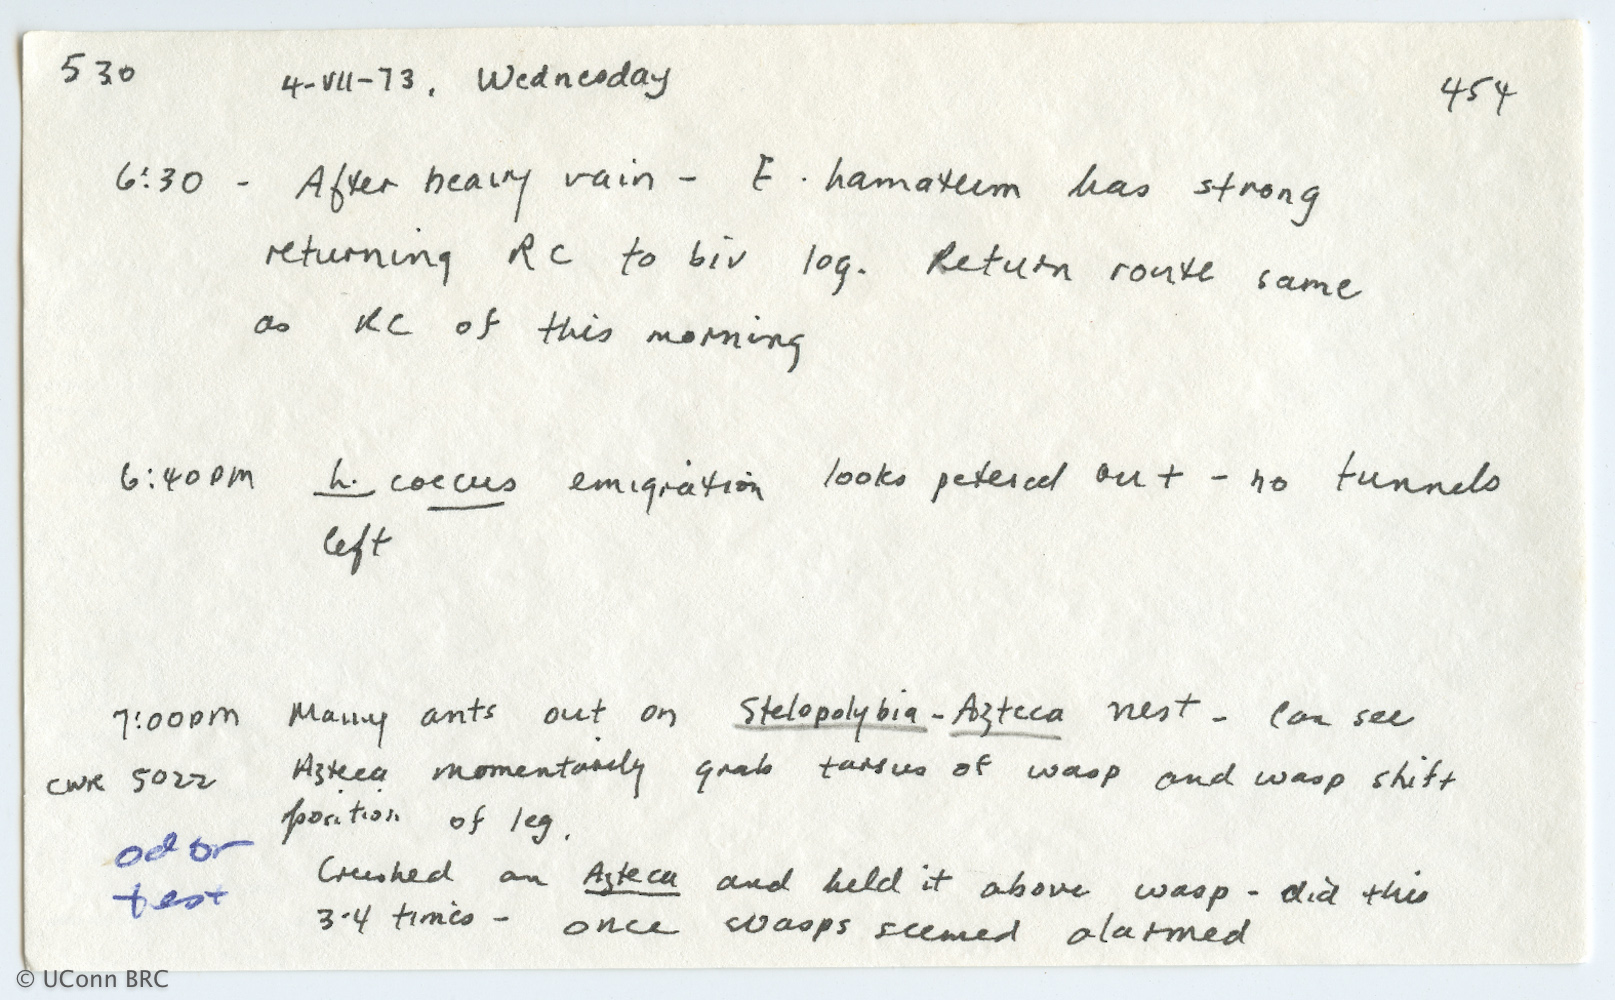 530 4-VII-73, Wednesday 454
6:30 - After heavy rain - E. hamatum has strong
returning RC to biv log. Return route same
as RC of this morning
6:40 pm h. coecus emigration looks petered out - no tunnels
left
7:00 pm Many ants out on Stelopolybia - Azteca nest - can see
CWR 5022 Azteca momentarily grab tarsus of wasp and wasp shift
position of leg.
odor
Crushed an Azteca and held it above wasp - did this
test
3-4 times - once wasps seemed alarmed
© UConn BRC